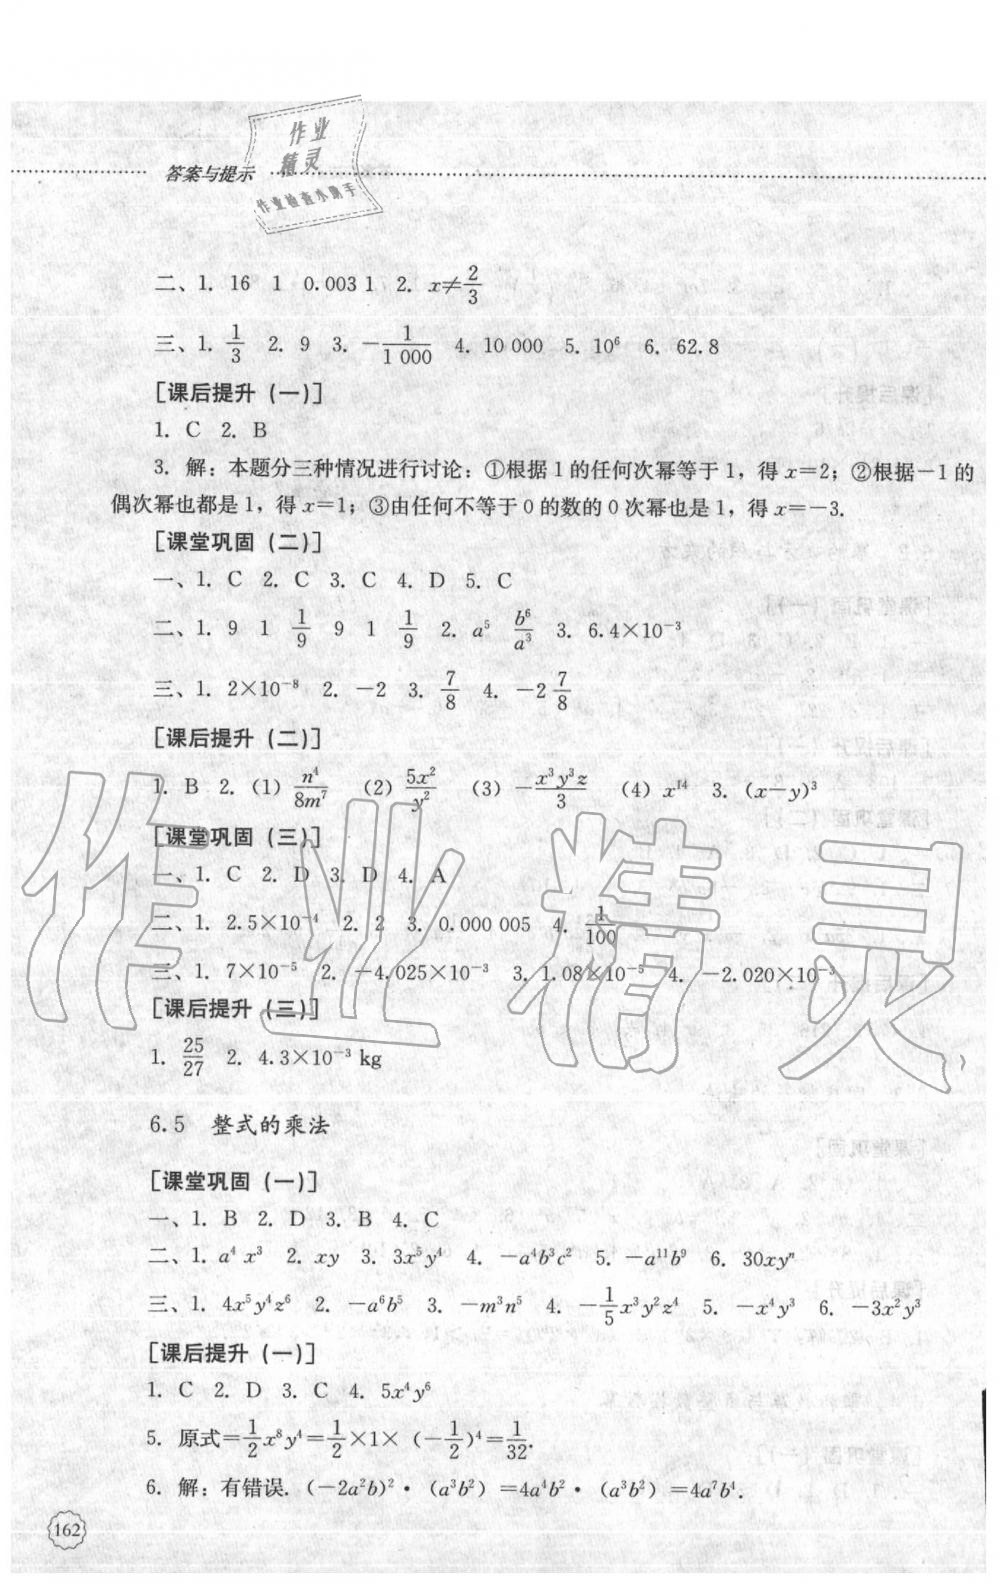 作业
精灵
答案与提示
作业检查小助手
二、1. 16 1 0.003 1 2. x≠2/3
三、1. 1/3 2. 9 3. -1/1 000 4. 10 000 5. 10⁶ 6. 62.8
[课后提升(一)]
1. C 2. B
3. 解:本题分三种情况进行讨论:①根据1的任何次幂等于1,得x=2;②根据-1的
偶次幂也都是1,得x=1;③由任何不等于0的数的0次幂也是1,得x=-3.
[课堂巩固(二)]
一、1. C 2. C 3. C 4. D 5. C
二、1. 9 1 1/9 9 1 1/9 2. a⁵ b⁶/a³ 3. 6.4×10⁻³
三、1. 2×10⁻⁸ 2. -2 3. 7/8 4. -2 7/8
[课后提升(二)]
1. B 2. (1) n⁴/8m⁷ (2) 5x²/y² (3) -x³y³z/3 (4) x¹⁴ 3. (x-y)³
[课堂巩固(三)]
一、1. C 2. D 3. D 4. A
二、1. 2.5×10⁻⁴ 2. 2 3. 0.000 005 4. 1/100
三、1. 7×10⁻⁵ 2. -4.025×10⁻³ 3. 1.08×10⁻⁵ 4. -2.020×10⁻³
[课后提升(三)]
1. 25/27 2. 4.3×10⁻³ kg
作业精灵
6.5 整式的乘法
[课堂巩固(一)]
一、1. B 2. D 3. B 4. C
二、1. a⁴ x³ 2. xy 3. 3x⁵y⁴ 4. -a⁴b³c² 5. -a¹¹b⁹ 6. 30xyⁿ
三、1. 4x⁵y⁴z⁶ 2. -a⁶b⁵ 3. -m³n⁵ 4. -1/5x³y²z⁴ 5. -x⁴y³ 6. -3x²y³
[课后提升(一)]
1. C 2. D 3. C 4. 5x⁴y⁶
5. 原式=1/2x⁸y⁴=1/2×1×(-1/2)⁴=1/32.
6. 解:有错误. (-2a²b)²·(a³b²)=4a⁴b²·(a³b²)=4a⁷b⁴.
162